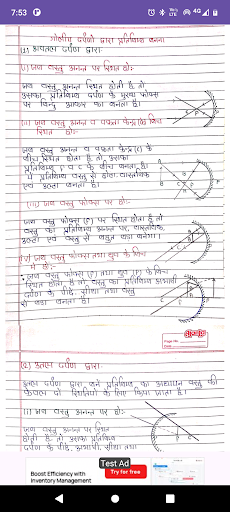 7:53
4G
गोलीय दर्पणों द्वारा प्रतिबिम्ब बनना
(1) अवतल दर्पण द्वारा-
(i) जब वस्तु अनन्त पर स्थित हो:-
जब वस्तु अनन्त स्थित होती है तो
उसका प्रतिबिम्ब दर्पण के मुख्य फोकस
पर बिन्दु आकार का बनता है।
(ii) जब वस्तु अनन्त व वक्रता केन्द्र (c) के बीच
स्थित हो:-
जब वस्तु अनन्त व वक्रता केन्द्र (c) के
बीच स्थित होता है तो, उसका
प्रतिबिम्ब F व C के बीच बनता है।
ये प्रतिबिम्ब वस्तु से छोटा वास्तविक
एवं उल्टा बनता है।
(iii) जब वस्तु फोकस पर हो:-
जब वस्तु फोकस (F) पर स्थित होता हैं तो
वस्तु का प्रतिबिम्ब अनन्त पर, वास्तविक,
उल्टा एवं वस्तु से बहुत बड़ा बनेगा।
(iv) जब वस्तु फोकस तथा ध्रुव के बीच
में हो:-
जब वस्तु फोकस (F) तथा ध्रुव (P) के बिच
स्थित होता है तो, वस्तु का प्रतिबिम्ब आभासी
दर्पण के पीछे, सीधा तथा वस्तु
से बड़ा बनता है।
Page No.
Date
(2) उत्तल दर्पण द्वारा-
उत्तल दर्पण द्वारा बने प्रतिबिम्ब का अध्ययन वस्तु की
केवल दो स्थितियों के लिए किया जाता है।
(i) जब वस्तु अनन्त पर हो:-
जब वस्तु अनन्त पर स्थित
होती है तो उसका प्रतिबिम्ब
दर्पण के पीछे, आभासी, सीधा तथा
Test Ad
Boost Efficiency with
Inventory Management
Try for free